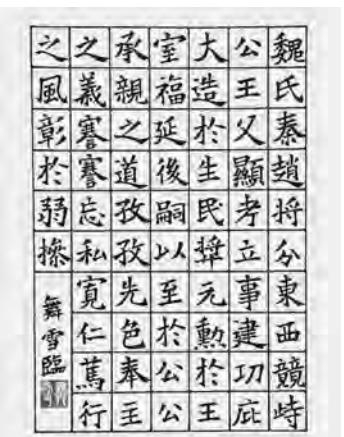 魏氏秦趙将分東西競峙
公王父顯考立事建功庇
大造於生民肇元勲於王
室福延後嗣以至於公公
承親之道孜孜先色奉主
之義謇謇忘私寛仁篤行
之風彰於弱操
舞雪臨